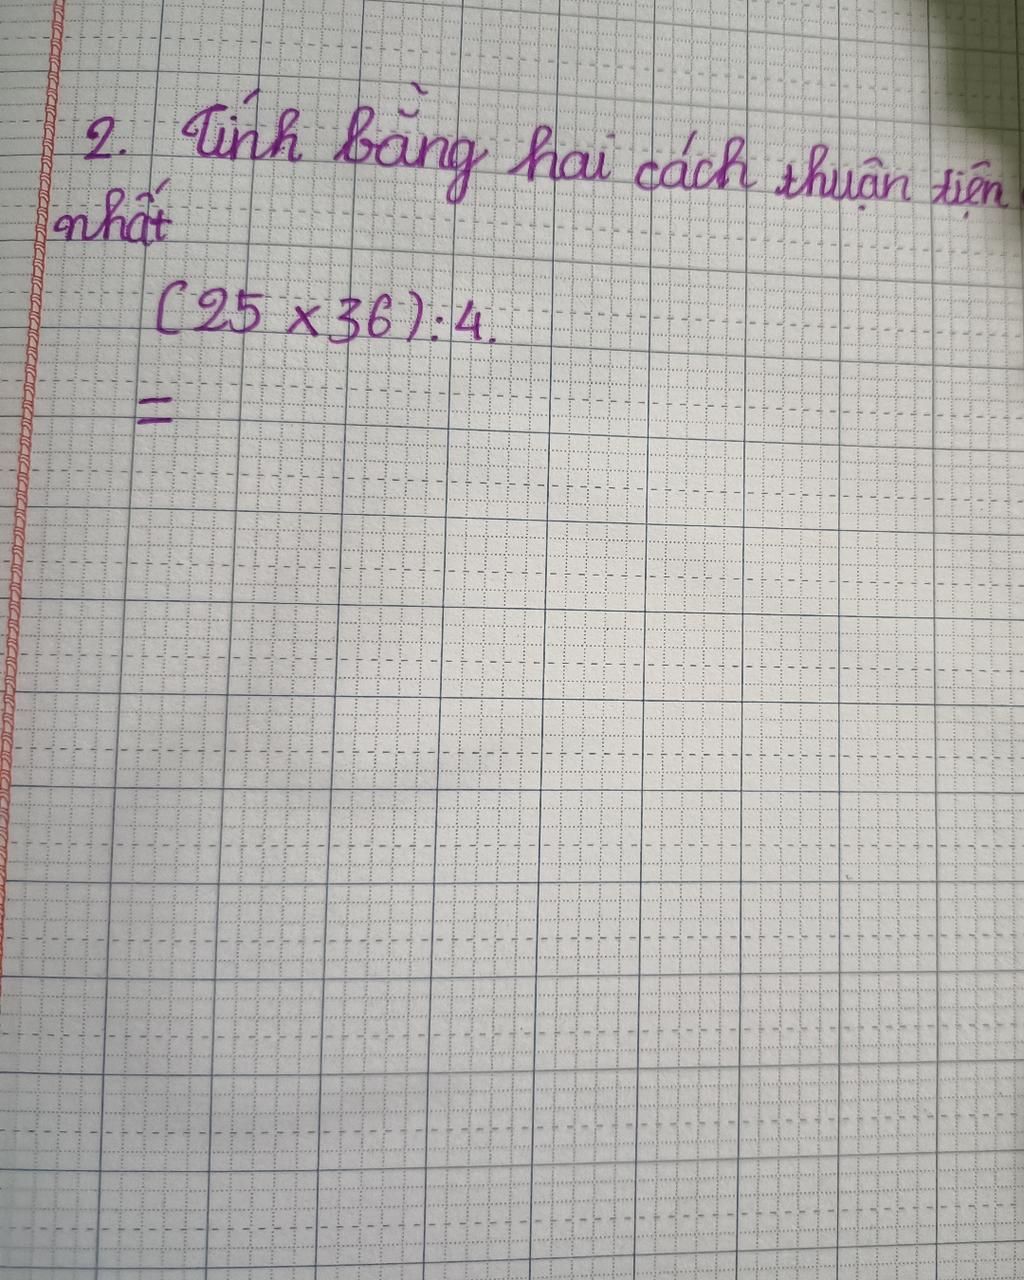 2. Tính bằng hai cách thuận tiện
nhất
(25 x 36) : 4.
=